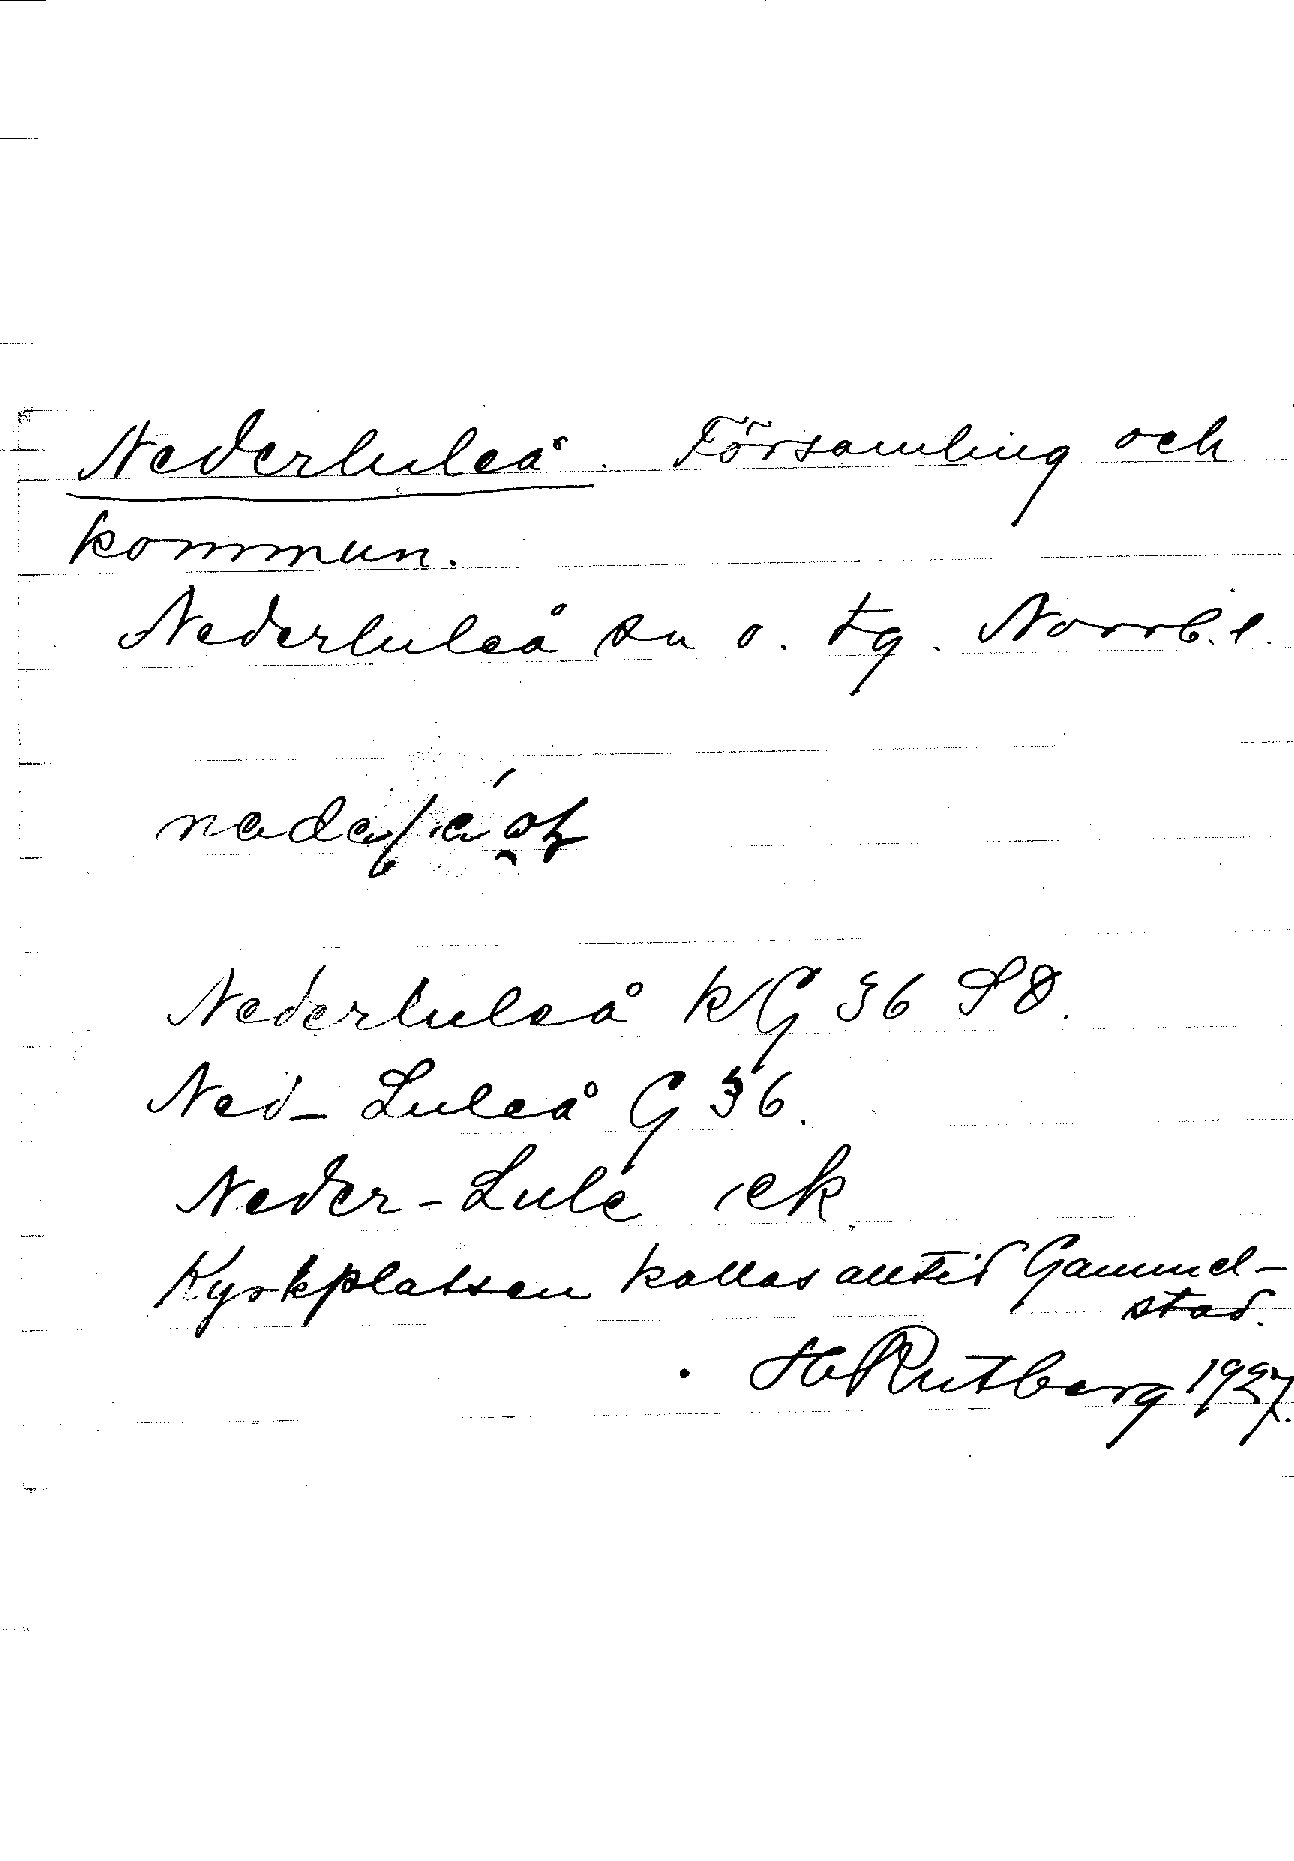 Nederluleå. Församling och
kommun.
Nederluleå sn o. tg. Norrb. l.
Nederluleå k G 36 SD.
Ned- Luleå G 36.
Neder-Lule ek
Kyrkplatsen kallas alltid Gammel-
stad.
H Rutberg 1927.